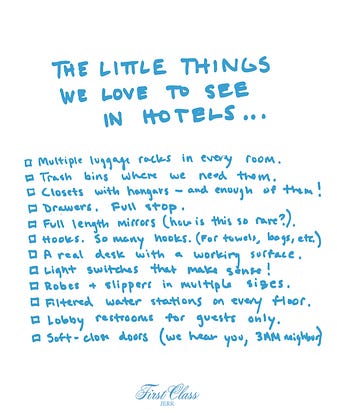 THE LITTLE THINGS
WE LOVE TO SEE
IN HOTELS...
Multiple luggage racks in every room.
Trash bins where we need them.
Closets with hangars - and enough of them!
Drawers. Full stop.
Full length mirrors (how is this so rare?).
Hooks. So many hooks. (For towels, bags, etc)
A real desk with a working surface.
Light switches that make sense!
Robes + slippers in multiple sizes.
Filtered water stations on every floor.
Lobby restrooms for guests only.
Soft-close doors (we hear you, 3AM neighbor)
First Class
JERK